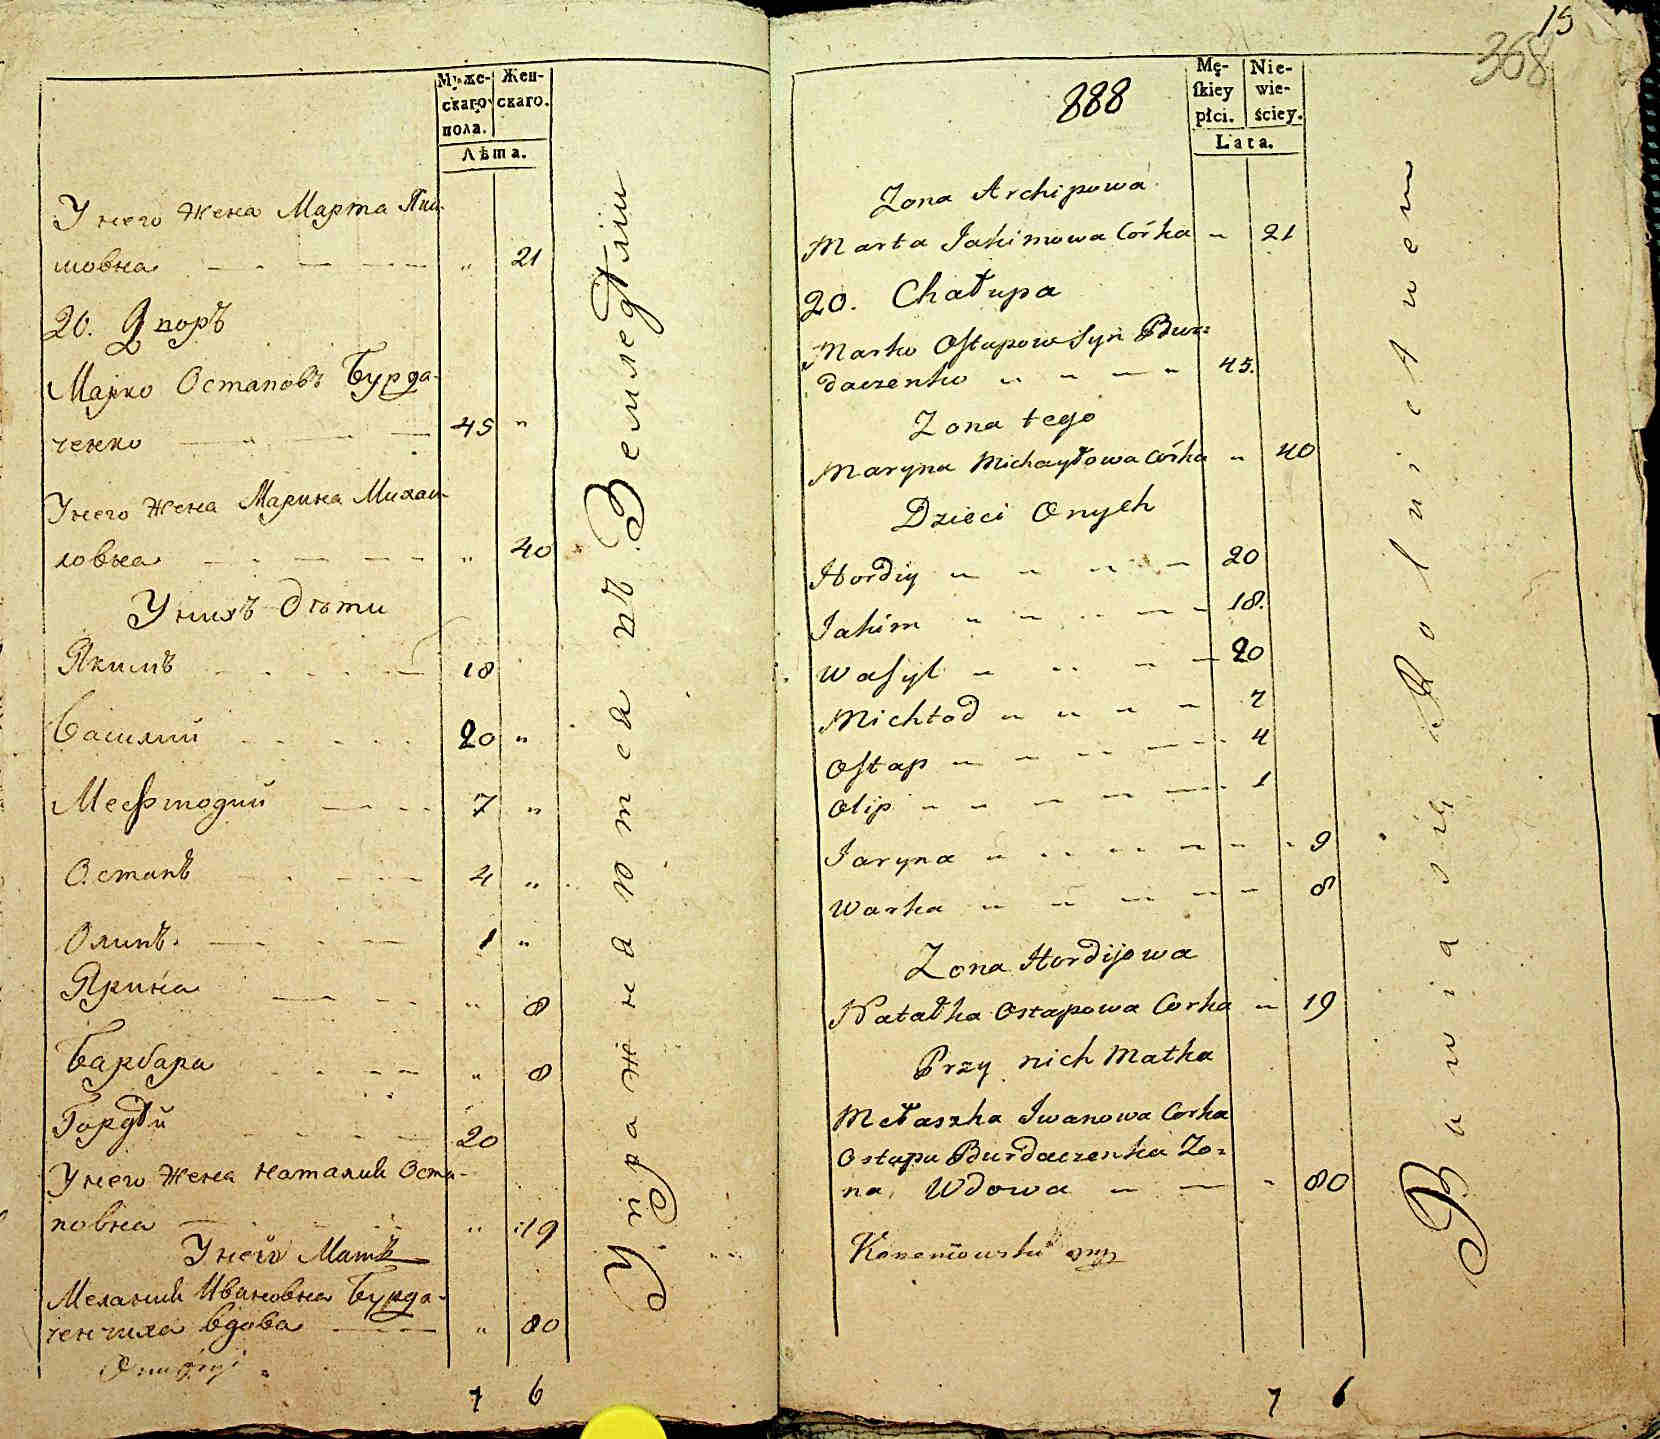 Муже-
скаго
пола.
Жен-
скаго.
Лѣта.
У него жена Марта Яки-
мовна — „ 21
20. Дворъ
Марко Остаповъ Бурда-
ченко — 45 „
У него жена Марина Михаи-
ловна — „ 40
У нихъ дѣти
Якимъ — 18
Василий — 20 „
Мефтодий — 7 „
Остапъ — 4 „
Олипъ. — 1 „
Ярина — „ 8
Барбара — „ 8
Гордѣй — 20
У него жена Наталия Оста-
повна — „ 19
У него Мать
Мелания Ивановна Бурда-
ченчиха вдова — „ 80
7 6
Упражняются въ Земледѣлии
15
368
888
Mę-
ſkiey
płci.
Nie-
wie-
ściey.
Lata.
Zona Archipowa
Marta Jakimowa Córka „ 21
20. Chałupa
Marko Oſtapow Syn Bur=
daczenko „ „ — „ 45.
Zona tego
Maryna Michayłowa Córka „ 40
Dzieci Onych
Hordiy „ „ „ — 20
Jakim „ „ „ — 18.
Waſyl „ „ „ — 20
Michtod „ „ „ „ 7
Oſtap „ „ „ — 4
Olip „ „ „ „ — 1
Jaryna „ „ „ „ „ 9
Warka „ „ „ „ — 8
Zona Hordijowa
Natałka Ostapowa Corka „ 19
Przy nich Matka
Mełaszka Iwanowa Corka
Ostapa Burdaczenka Zo=
na, Wdowa „ — „ 80
7 6
Bawiąsię Rolnictwem